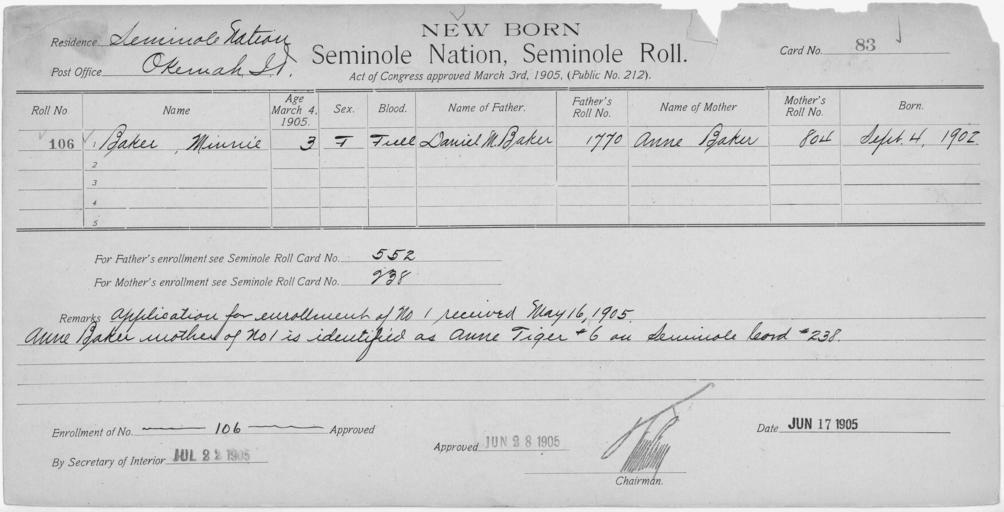 NEW BORN
Residence Seminole Nation
Seminole Nation, Seminole Roll.
Card No. 83
Post Office Okemah I.T.
Act of Congress approved March 3rd, 1905, (Public No. 212).
Roll No Name Age March 4, 1905. Sex. Blood. Name of Father. Father's Roll No. Name of Mother Mother's Roll No. Born.
106 1 Baker, Minnie 3 F Full Daniel M. Baker 1770 Anne Baker 804 Sept. 4, 1902
2
3
4
5
For Father's enrollment see Seminole Roll Card No. 552
For Mother's enrollment see Seminole Roll Card No. 238
Remarks Application for enrollment of No 1 received May 16, 1905.
Anne Baker mother of No 1 is identified as Anne Tiger #6 on Seminole Card #238.
Enrollment of No. 106 Approved
Date JUN 17 1905
Approved JUN 28 1905
By Secretary of Interior JUL 22 1905
Chairman.